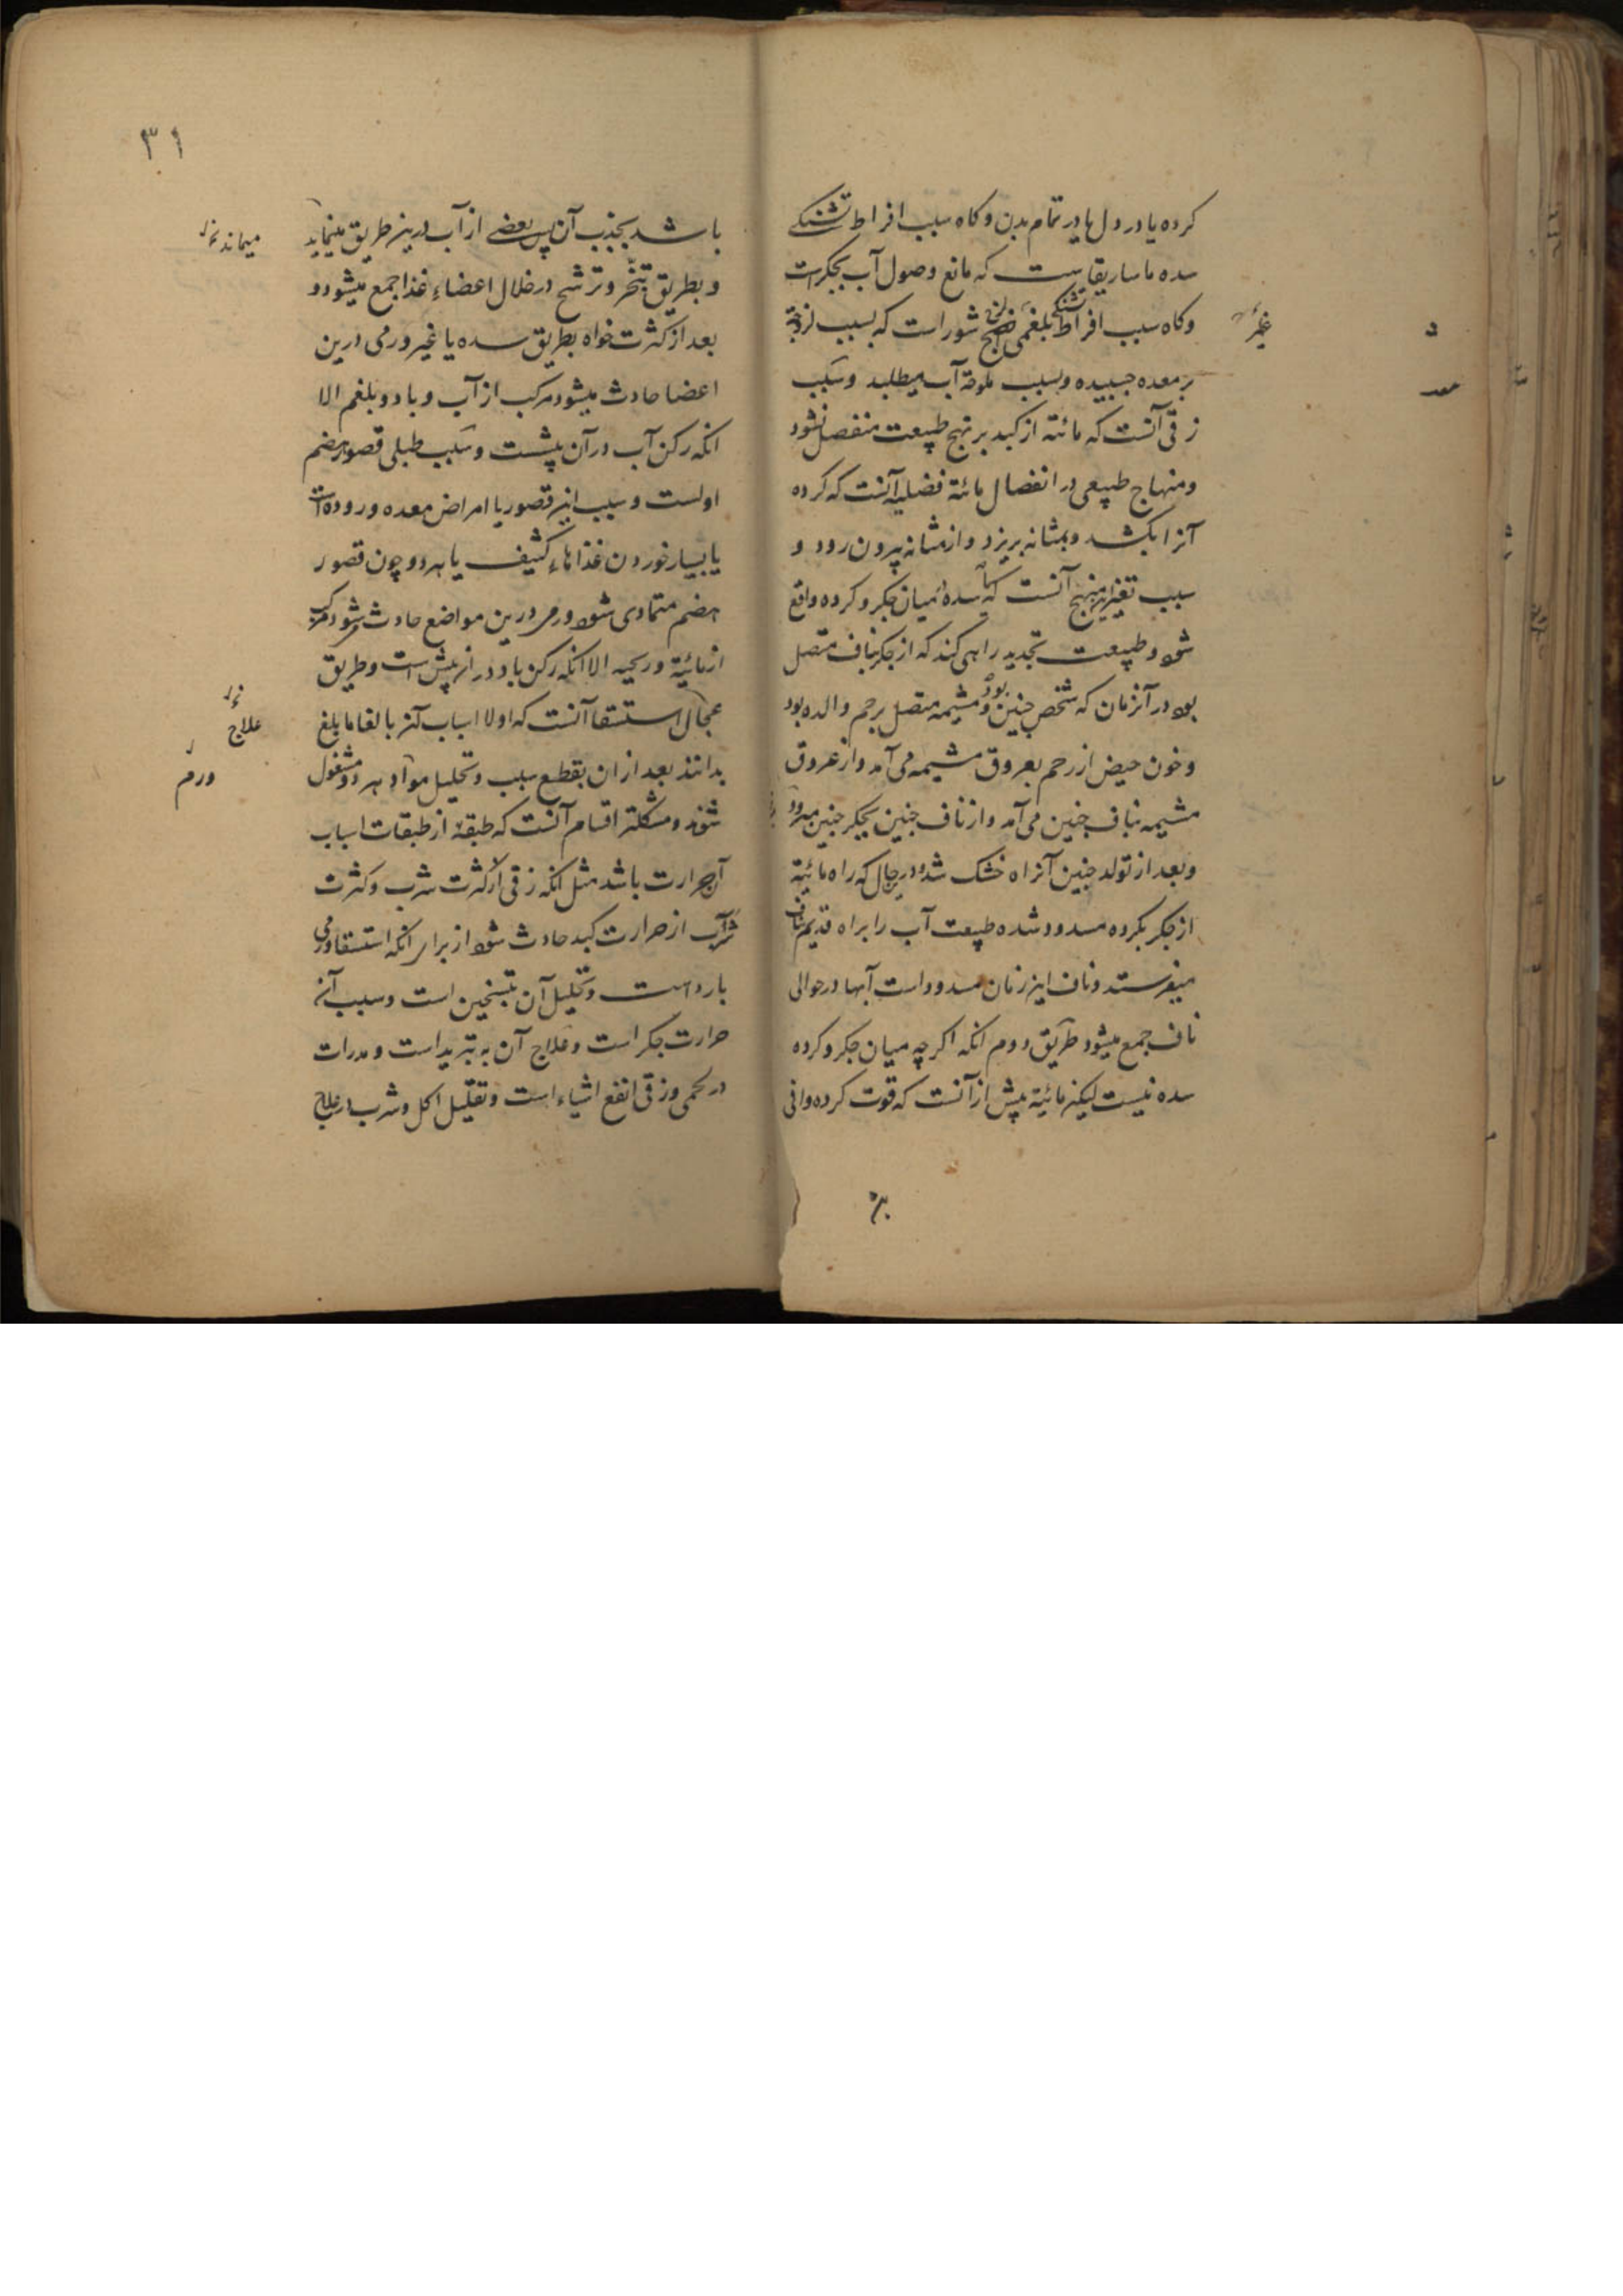 کرده یا در دل یا در تمام بدن و کاه سبب افراط تشنکی
سده ماساریقاست که مانع وصول آب بجکر است
و کاه سبب افراط تشنکی بلغمی لزج شور است که بسبب لزوجة
بر معده چسبیده و بسبب ملوحة آب میطلبد و سبب
زقی آنست که مائته از کبد بر نهج طبیعت منفصل نشود
و منهاج طبیعی در انفصال مائة فضلیه آنست که کرده
آنرا بکشد و بمثانه بریزد و از مثانه بیرون رود و
سبب تغیر این منهج آنست که سده میان جکر و کرده واقع
شود و طبیعت تجدید راهی کند که از جکر بناف متصل
بود در آنزمان که شخص جنین بود و مشیمه متصل برحم والده بود
و خون حیض از رحم بعروق مشیمه می آمد و از عروق
مشیمه بناف جنین می آمد و از ناف جنین بجکر جنین میرود
و بعد از تولد جنین آنراه خشک شد و در حال که راه مائیة
از جکر بکرده مسدود شده طبیعت آب را براه قدیم بناف
میفرستد و ناف این زمان مسدود است آبها در حوالی
ناف جمع میشود طریق دوم انکه اکر چه میان جکر و کرده
سده نیست لیکن مائیة بیش از آنست که قوت کرده وافی
۳۱
باشد بجذب آن پس بعضی از آب درین طریق مینماید
میماند
و بطریق تبخر و ترشح در خلال اعضاء غذا جمع میشود و
بعد از کثرت خواه بطریق سده یا غیر ورمی درین
اعضا حادث میشود مرکب از آب و باد و بلغم الا
انکه رکن آب در آن بیشست و سبب طبلی قصور هضم
اولست و سبب این قصور یا امراض معده و روده است
یا بسیار خوردن غذاهاء کثیف یا هر دو چون قصور
هضم متمادی شود ورمی درین مواضع حادث شود مرکب
از مائیة و ریحیه الا انکه رکن باد در این بیش است و طریق
استسقا آنست که اولا اسباب آنرا بالغا ما بلغ
علاج
بدانند بعد از ان بقطع سبب و تحلیل مواد هر دو مشغول
ورم
شوند و مشکلتر اقسام آنست که طبقهٔ از طبقات اسباب
آن حرارت باشد مثل انکه زقی از کثرت شرب و کثرت
شرب از حرارت کبد حادث شود از برای انکه استسقا ورمی
بارد است و تحلیل آن بتسخین است و سبب آن
حرارت جکر است و علاج آن به تبرید است و مدرات
در لحمی و زقی انفع اشیاء است و تقلیل اکل و شرب در علاج